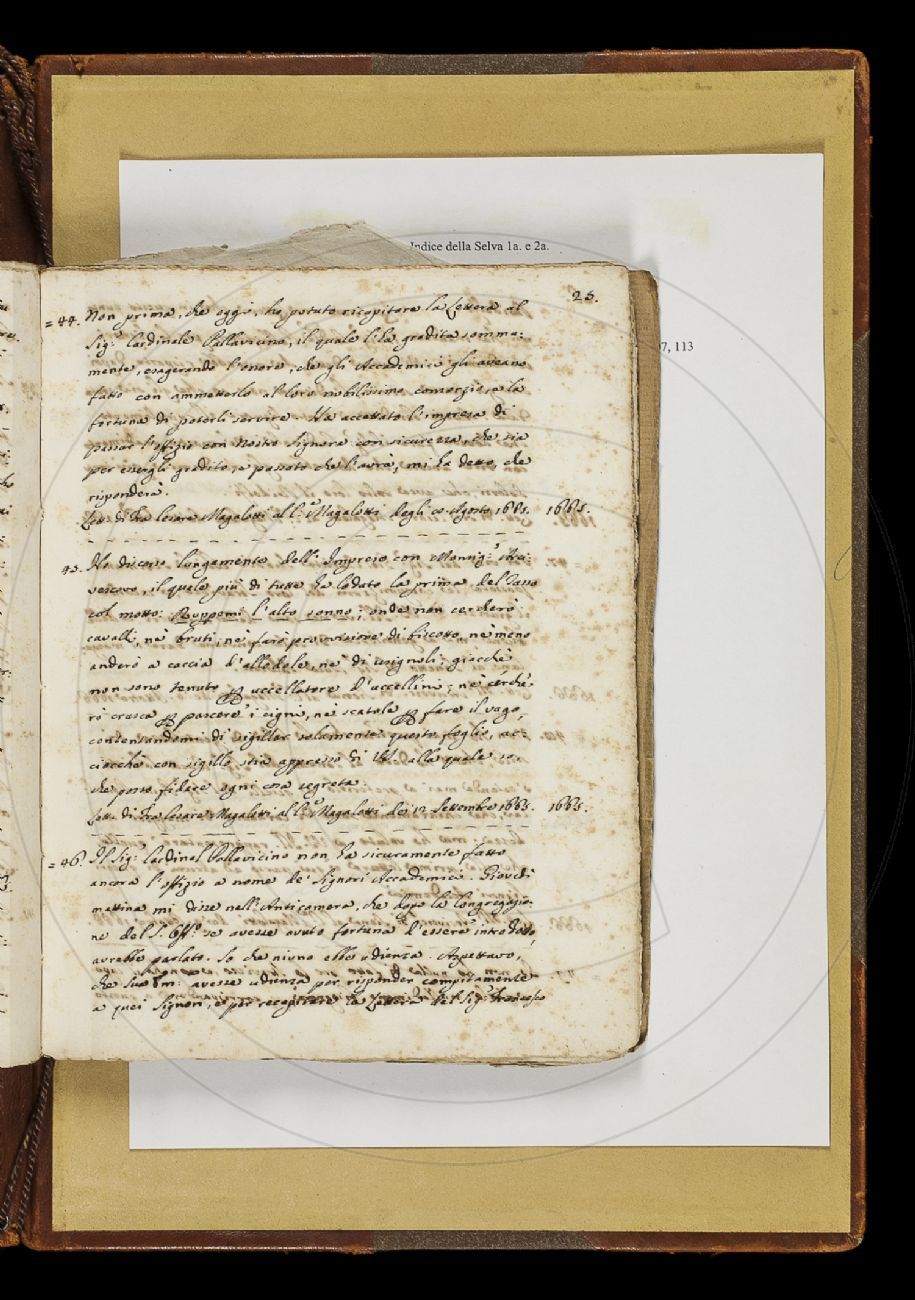 Indice della Selva 1a. e 2a.
7, 113
25.
= 44. Non prima, che oggi, ho potuto ricapitare la Lettera al
Sig.r Cardinale Pallavicino, il quale l'ha gradita somma:
mente, esagerando l'onore, che gli Accademici gli aveano
fatto con ammetterlo al loro nobilissimo consorzio, e la
fortuna di poterli servire. Ha accettato l'impresa di
passar l'offizio con Nostro Signore con sicurezza, che sia
per essergli gradito, e passato che l'avrà, mi ha detto, che
risponderà.
Lett. di Fra Cesare Magalotti al C.e Magalotti degli Agosto 1665. 1665.
45. Ho discorso lungamente dell' Imprese con Monsig.r Arci:
vescovo, il quale più di tutte ha lodato la prima del Tasso
col motto: Ruppemi l'alto sonno; onde non cercherò
cavalli, nè bruti; nè farò provvisione di biscotto, nè meno
anderò a caccia d'allodole, nè di usignoli; giacchè
non sono tenuto per uccellatore d'uccellini; nè cerche:
rò crusca per pascere i cigni, nè scatole per fare il vago,
contentandomi di sigillar solamente questo foglio, ac:
ciocchè con sigillo stia appresso di alla quale so,
che posso fidare ogni cosa segreta.
Lett. di Fra Cesare Magalotti al C.e Magalotti de' 12 Settembre 1665. 1665.
= 46. Il Sig.r Cardinal Pallavicino non ha sicuramente fatto
ancora l'offizio a nome de' Signori Accademici. Giovedì
mattina mi disse nell'Anticamera, che dopo la Congregazio:
ne del S. Off.o se avesse avuto fortuna d'essere introdotto,
avrebbe parlato. So che niuno ebbe udienza. Aspettavo,
che Sua Em: avesse udienza per risponder compitamente
a quei Signori, e per recapitare la Lettera del Sig.r Francesco